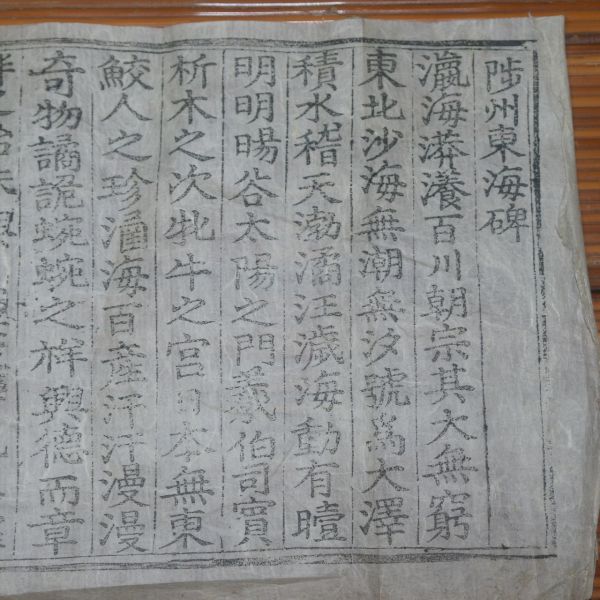 陟州東海碑
瀛海漭瀁百川朝宗其大無窮
東北沙海無潮無汐號爲大澤
積水稽天渤潏汪濊海動有曀
明明暘谷太陽之門羲伯司賓
析木之次牝牛之宮日本無東
鮫人之珍涵海百産汗汗漫漫
奇物譎詭蜿蜿之祥興德而章